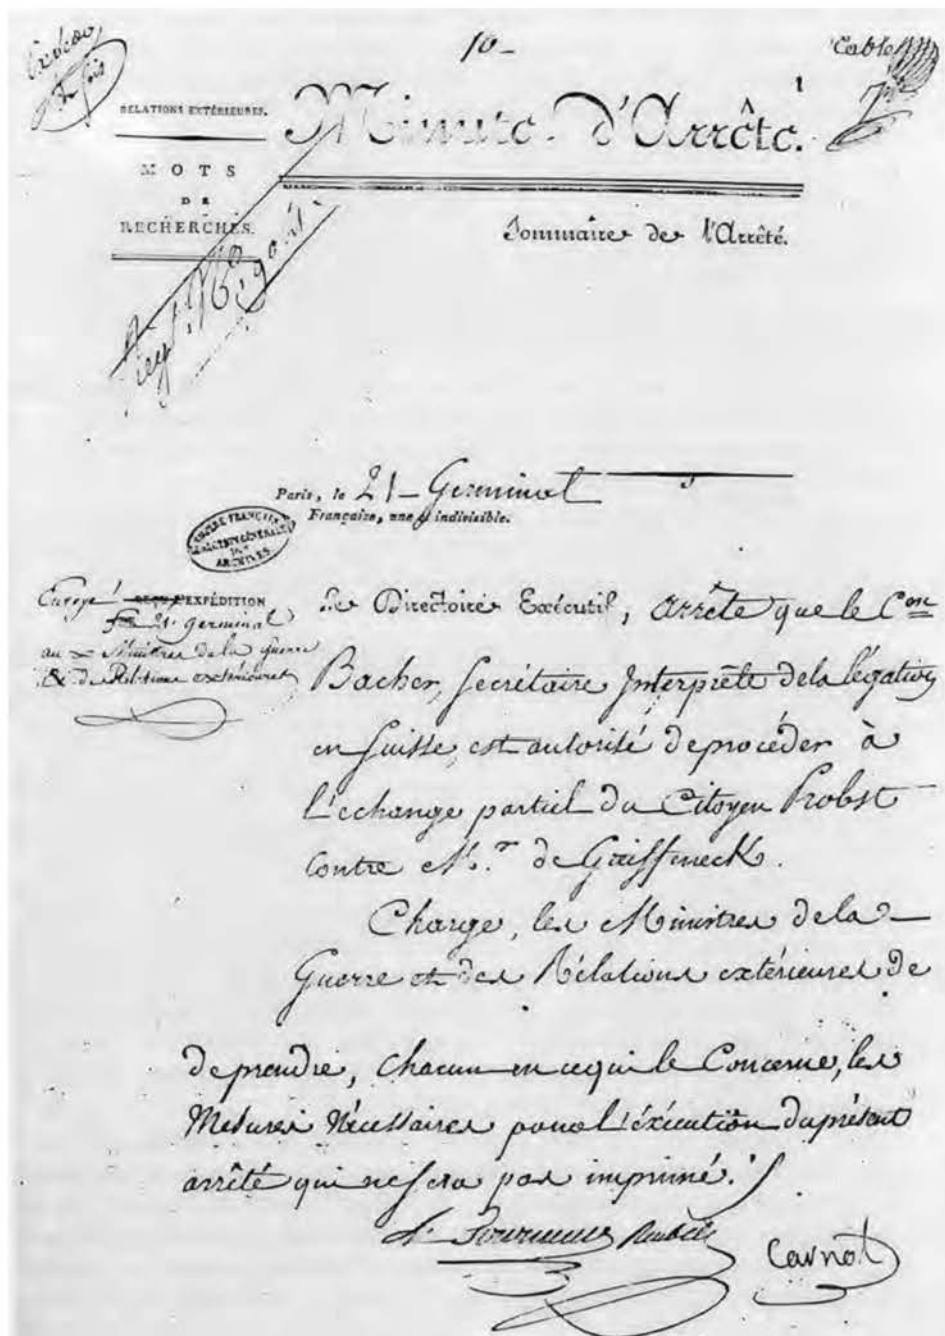 10-
RELATIONS EXTÉRIEURES.
MOTS
DE
RECHERCHES.
Minute d'Arrêté.
1
Sommaire de l'Arrêté.
Paris, le 21 Germinal
Française, une et indivisible.
ARCHIVES
Envoyé EXPÉDITION
21 germinal
au x Ministres de la guerre
& de Relations extérieures
Le Directoire Exécutif, arrête que le Con
Bacher, Secrétaire Interprête de la légation
en Suisse, est autorisé de procéder à
l'echange partiel du Citoyen Probst
contre Mr. de Greiffeneck.
Charge, les Ministres de la
Guerre et des Rélations extérieures de
de prendre, chacun en ce qui le Concerne, les
Mesures Nécessaires pour l'éxécution du présent
arrêté qui ne sera pas imprimé.
Carnot